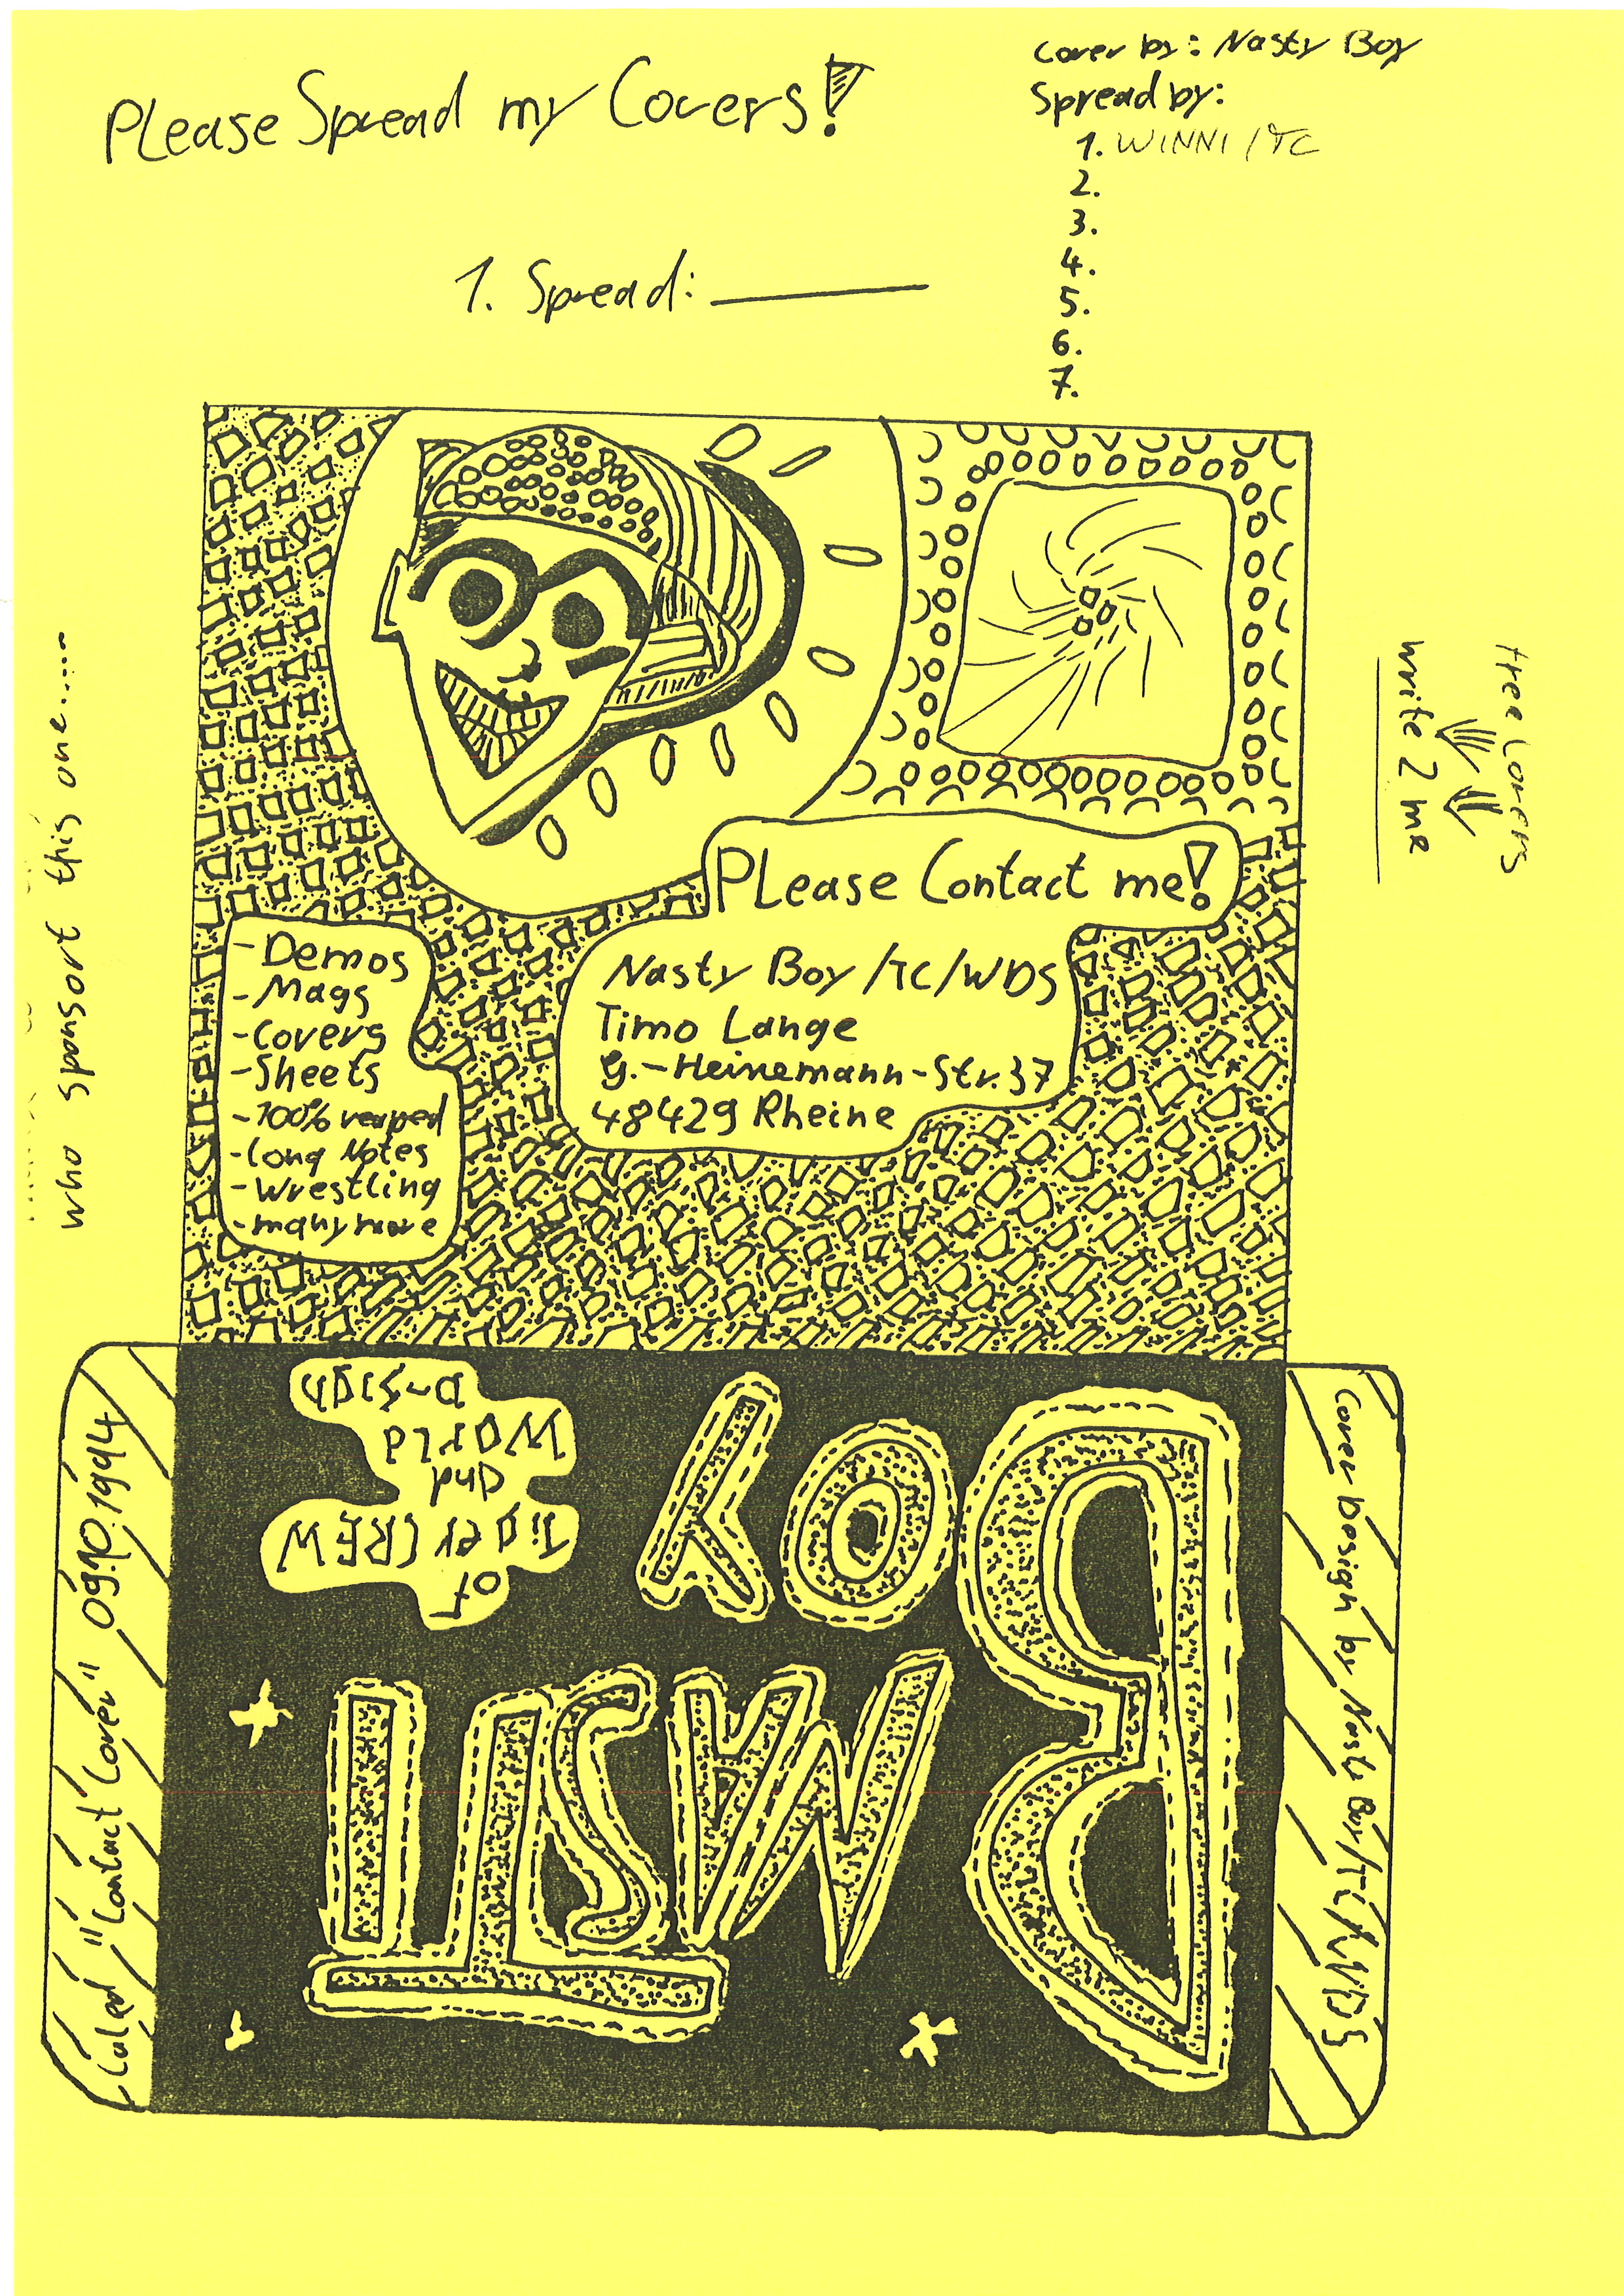 Cover by: Nasty Boy
Please Spread my Covers!
Spread by:
1. WINNI/TC
2.
3.
4.
5.
6.
7.
1. Spread:
who sponsort this one.....
write 2 me
Please Contact me!
Nasty Boy /TC/WDS
Timo Lange
G.-Heinemann-Str. 37
48429 Rheine
-Demos
-Mags
-Covers
-Sheets
-100% reaped
-Long Notes
-Wrestling
-many more
NASTY
BOY
of
Tiger CREW
and
World
D-sign
Caled "Contact Cover" 09.10.1994
Cover Design by Nasty Boy/TC/WDS